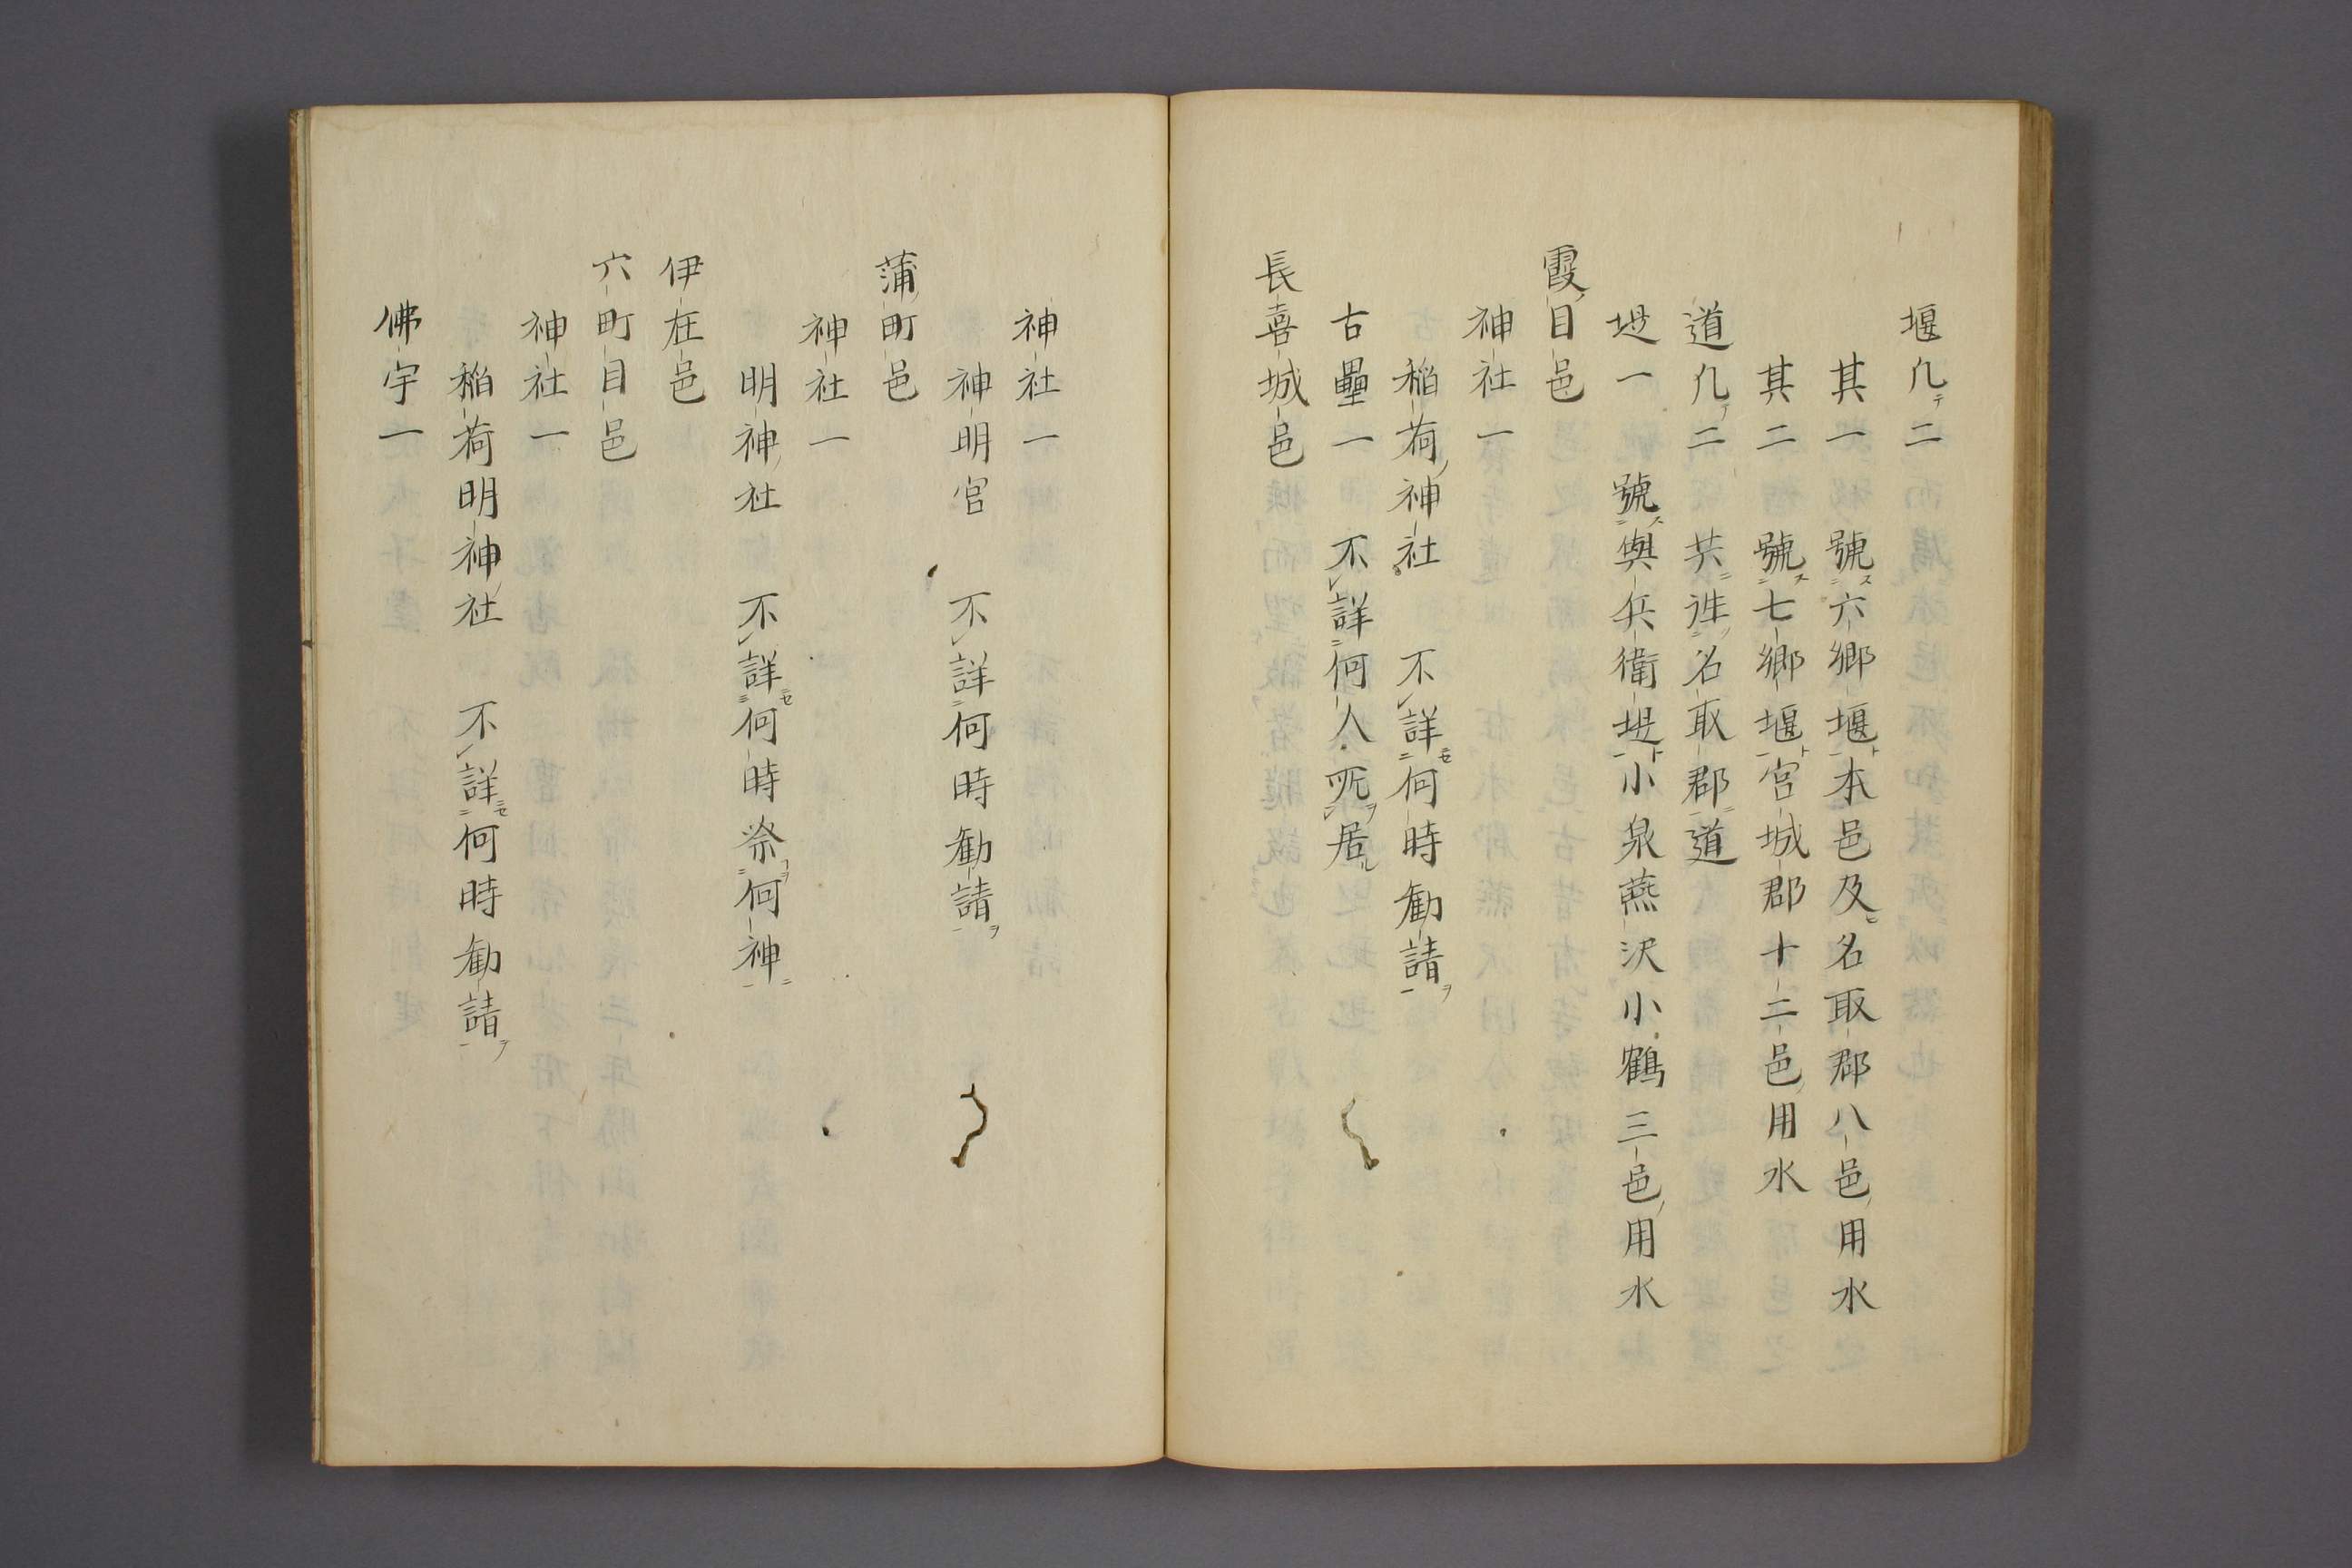 堰凢テ二
其一　號ス六郷堰ト本邑及ヒ名取郡八邑用水
其二　號ス七郷堰ト宮城郡十二邑用水
道凢テ二　共ニ徃ク名取郡ニ道
堤一　號ス與兵衛堤ト小泉燕沢小鶴三邑用水
霞目邑
神社一
稲荷神社　不詳セ何時勧請ヲ
古壘一　不詳何人所ヲ居ル
長喜城邑
神社一
神明宮　不詳何時勧請ヲ
蒲町邑
神社一
明神社　不詳セ何時祭ヲ何神ニ
伊在邑
六町目邑
神社一
稲荷明神社　不詳セ何時勧請ヲ
佛宇一